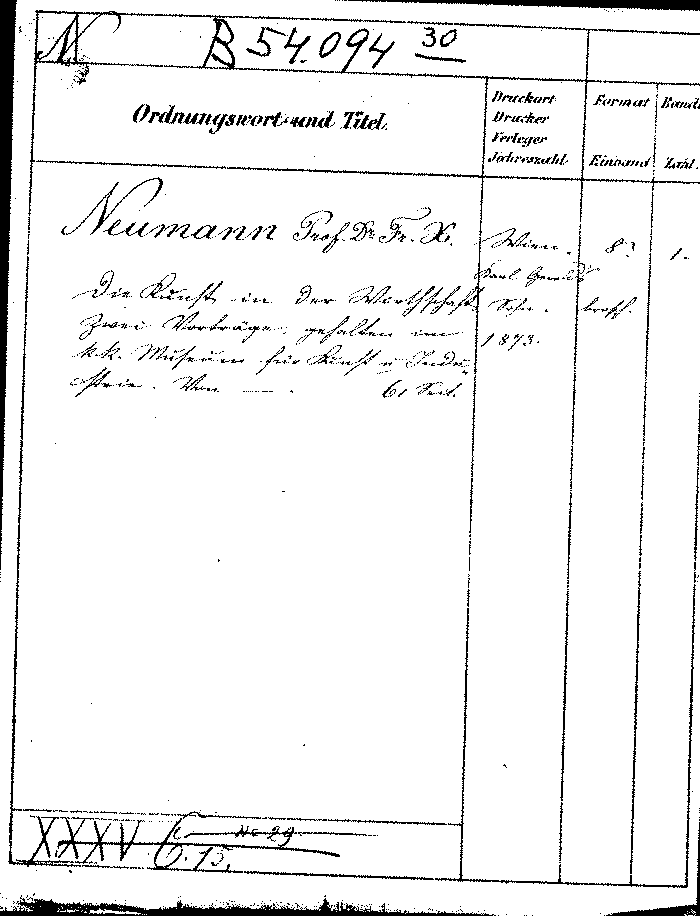 N
B 54.094 30
Ordnungswort und Titel.
Druckort
Drucker
Verleger
Jahreszahl
Format
Einband
Band
Zahl.
Neumann Prof. Dr. Fr. X.
Die Kunst in der Wirthschaft.
Zwei Vorträge, gehalten im
k.k. Museum für Kunst u. Indu-
strie. Von — . 61 Seit.
Wien.
Karl Gerold's
Sohn.
1873.
8°.
brosch.
1.
No 29
XXXV C. 15.